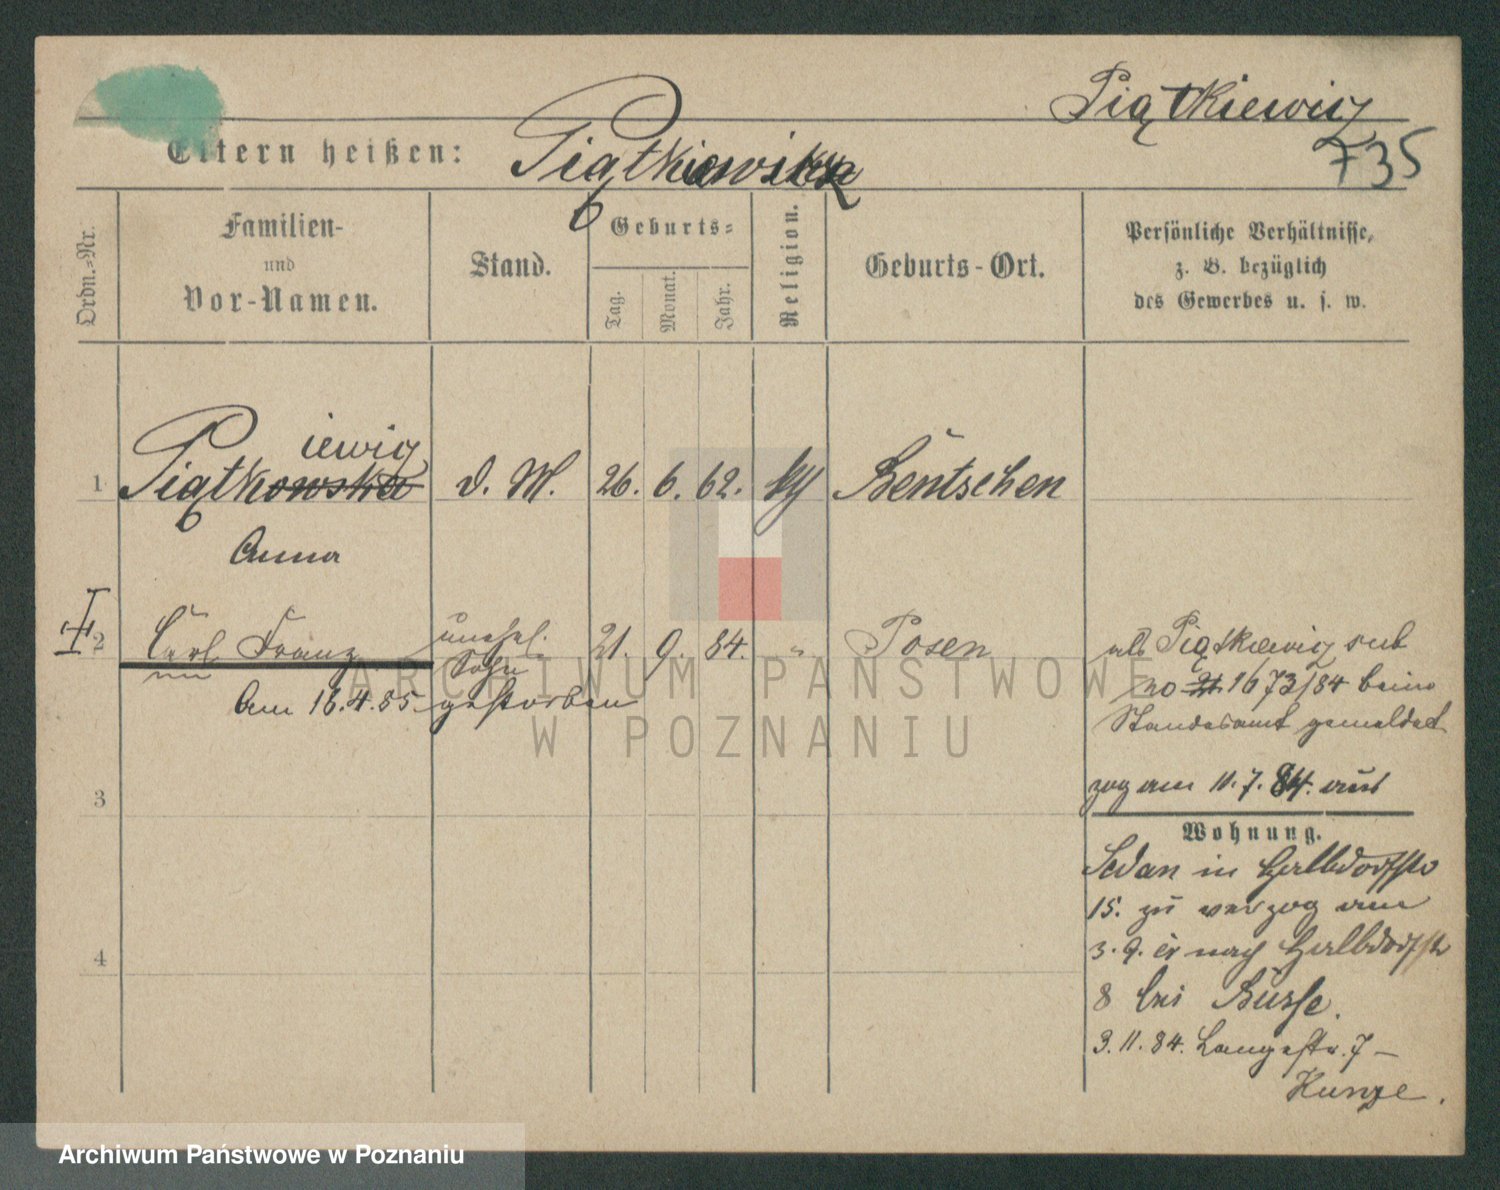 Piątkiewicz
735
Eltern heißen: Piątkiewicz
Ordn.-Nr.
Familien-
und
Vor-Namen.
Stand.
Geburts-
Tag.
Monat.
Jahr.
Religion.
Geburts-Ort.
Persönliche Verhältnisse,
z. B. bezüglich
des Gewerbes u. s. w.
iewicz
1 Piątkowska d. M. 26. 6. 62. kth Bentschen
Anna
2 Carl Franz unehel. 21. 9. 84. " Posen
Sohn
am 16.4.85 gestorben
als Piątkiewicz sub
no 1673/84 beim
Standesamt gemeldet
3
zog am 11.7.84. aus
Wohnung.
Sedan in Halbdorfstr
15. zu verzog am
3.9. er nach Halbdorfstr
4
8 bei Busse.
3.11.84. Langestr. 7 –
Kunze.
ARCHIWUM PAŃSTWOWE
W POZNANIU
Archiwum Państwowe w Poznaniu